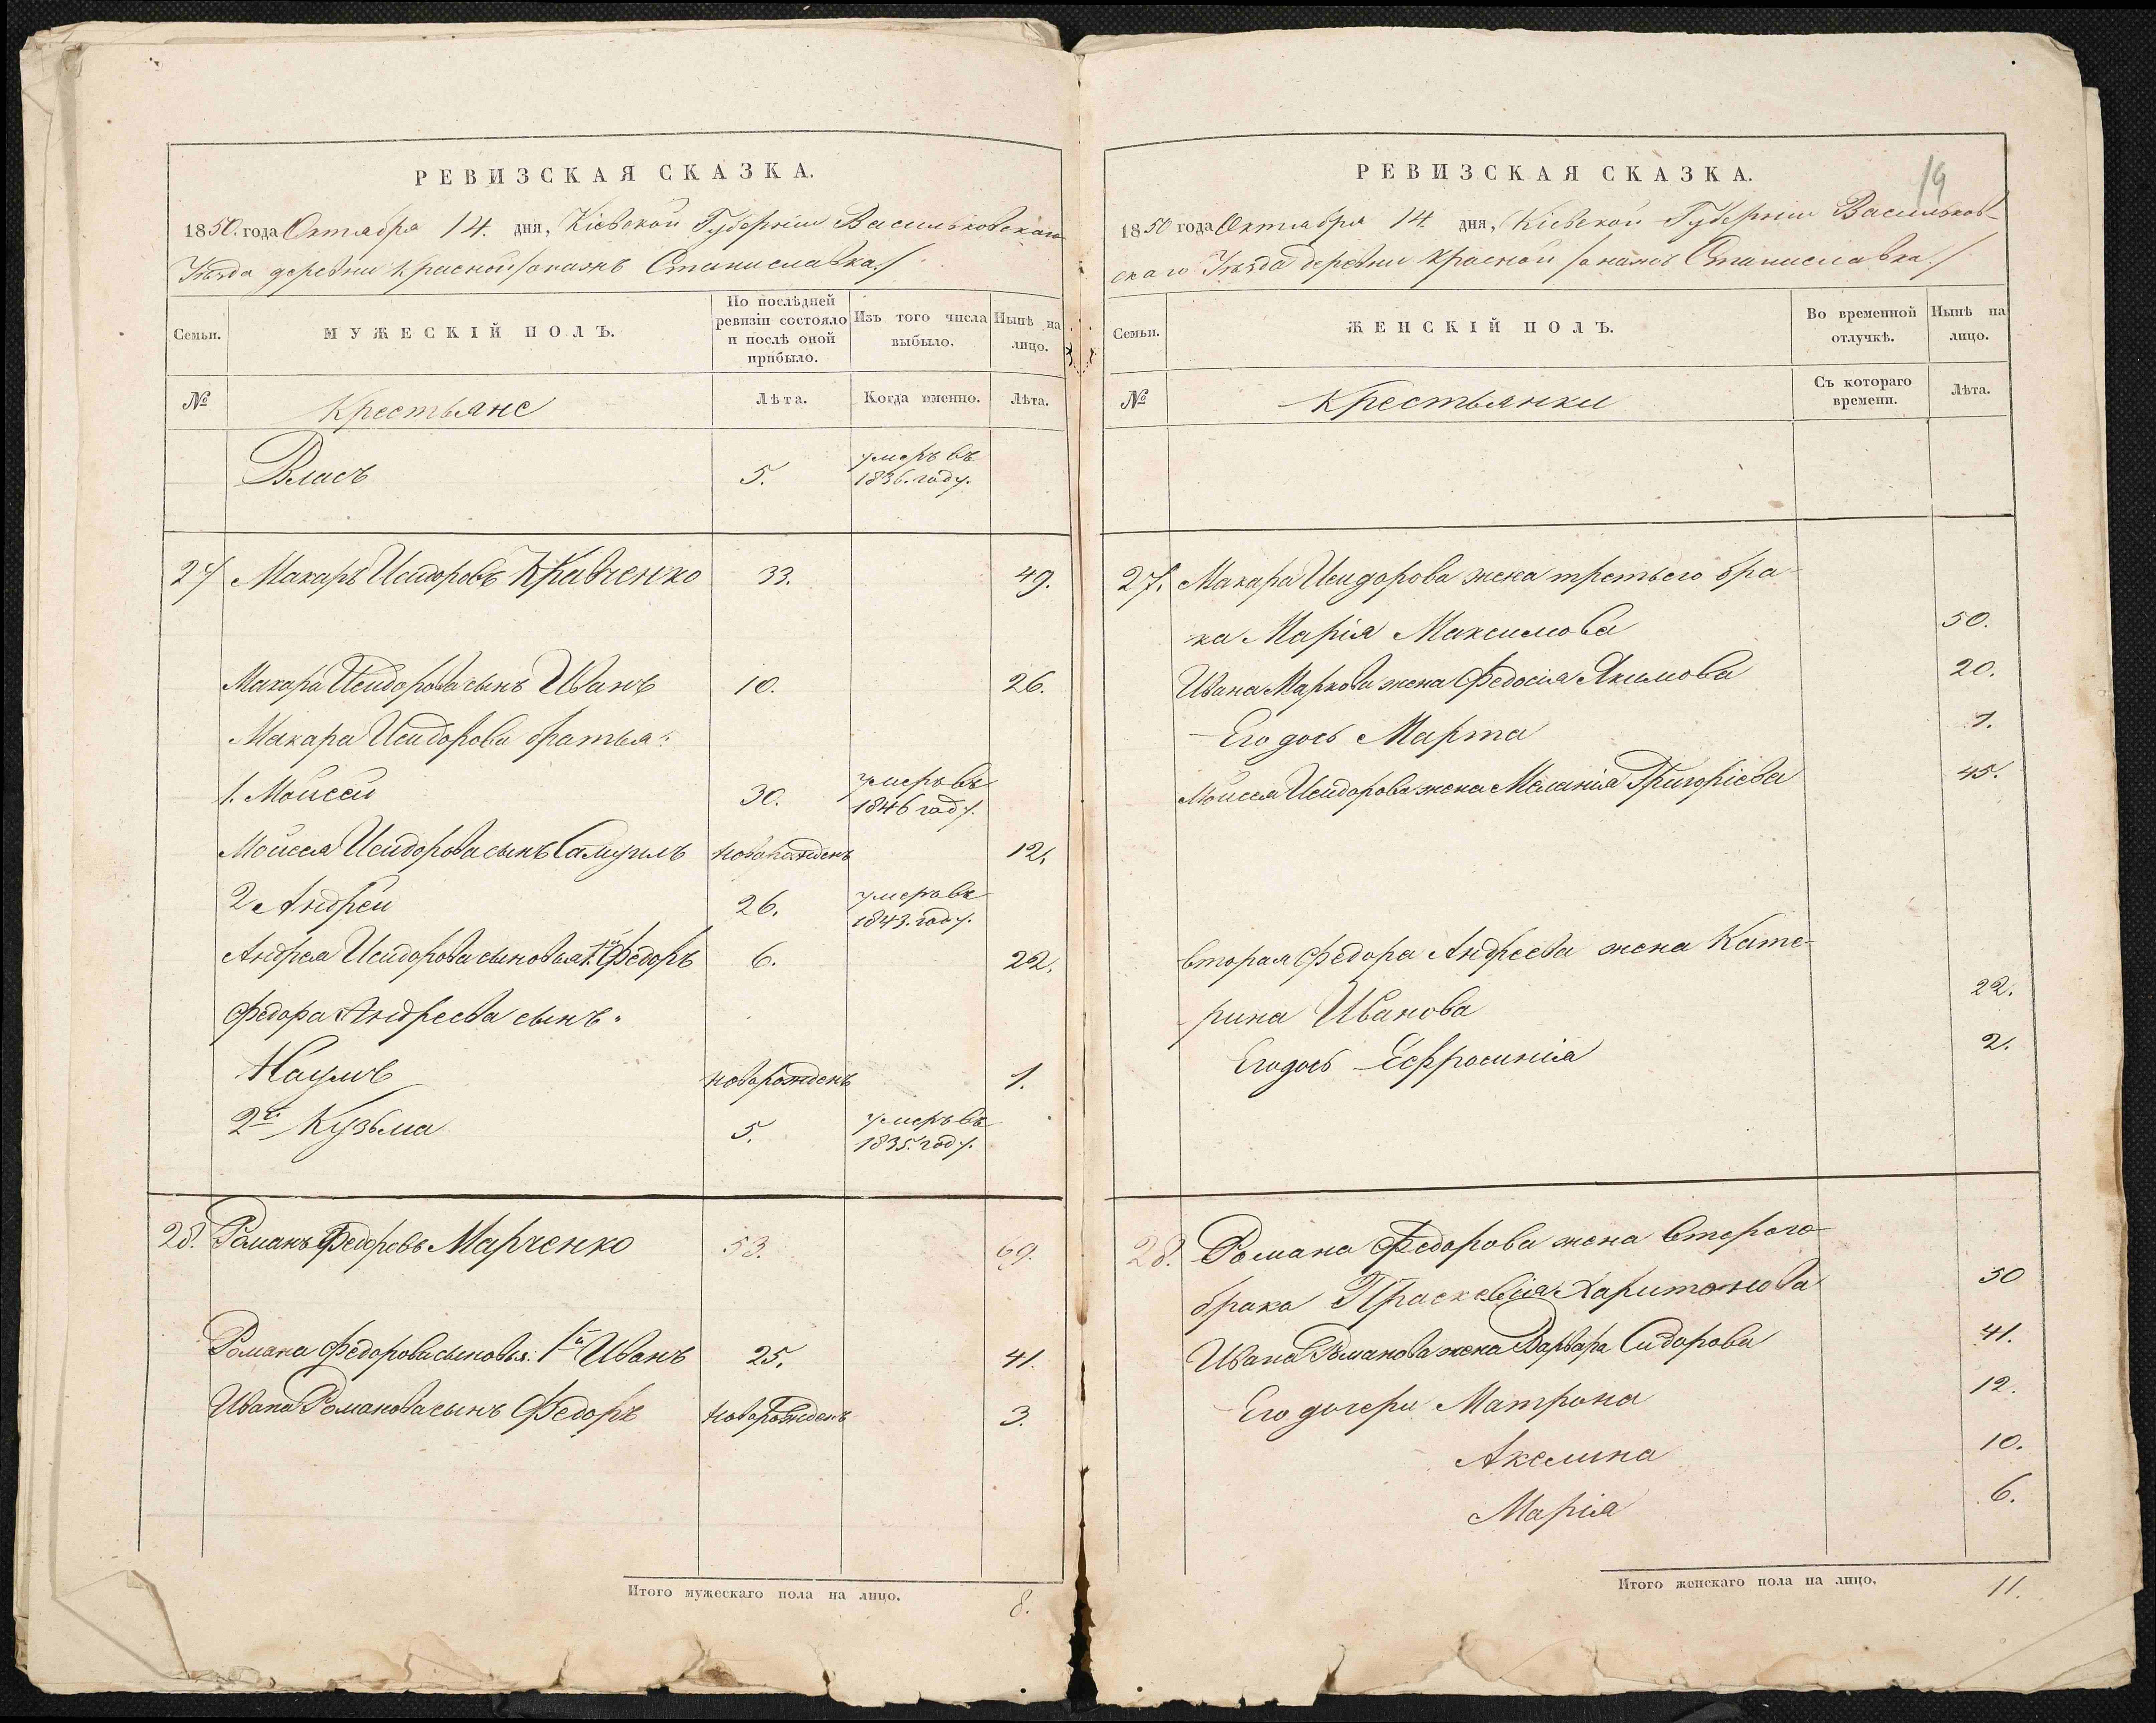 РЕВИЗСКАЯ СКАЗКА.
1850. года Октября 14. дня, Кіевской Губерніи Васильковскаго
Уѣзда деревни Красной /онажъ Станиславка./
Семьи.
МУЖЕСКІЙ ПОЛЪ.
По послѣдней
ревизіи состояло
и послѣ оной
прибыло.
Изъ того числа
выбыло.
Нынѣ на
лицо.
№
Крестьяне
Лѣта.
Когда именно.
Лѣта.
Власъ 5. умеръ въ
1836. году.
27 Макаръ Исидоровъ Кравченко 33. 49.
Макара Исидорова сынъ Иванъ 10. 26.
Макара Исидорова братья:
1. Моисей 30. умеръ въ
1846 году.
Моисея Исидорова сынъ Самуилъ новорожденъ 12.
2 Андрей 26. умеръ въ
1843. году.
Андрея Исидорова сыновья 1й Федоръ 6. 22.
Федора Андреева сынъ
Наумъ новорожденъ 1.
2й Кузьма 5. умеръ въ
1835. году.
28. Романъ Федоровъ Марченко 53. 69.
Романа Федорова сыновья: 1й Иванъ 25. 41.
Ивана Романова сынъ Федоръ новорожденъ 3.
Итого мужескаго пола на лицо. 8.
19
РЕВИЗСКАЯ СКАЗКА.
1850 года Октября 14. дня, Кіевской Губерніи Васильков-
скаго Уѣзда деревни Красной /онажъ Станиславка./
Семьи.
ЖЕНСКІЙ ПОЛЪ.
Во временной
отлучкѣ.
Нынѣ на
лицо.
№
Крестьянки
Съ котораго
времени.
Лѣта.
27. Макара Исидорова жена третьего бра-
ка Марія Максимова 50.
Ивана Маркова жена Федосія Якимова 20.
Его дочь Марта 1.
Моисея Исидорова жена Меланія Григоріева 45.
вторая Федора Андреева жена Кате-
рина Иванова 22.
Его дочь Ефросинія 2.
28. Романа Федорова жена второго
брака Праскевія Харитонова 50
Ивана Романова жена Варвара Сидорова 41.
Его дочери Матрона 12.
Акелина 10.
Марія 6.
Итого женскаго пола на лицо. 11.